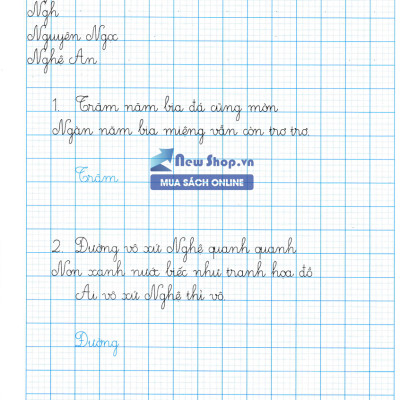 Ngh
Nguyên Ngx
Nghệ An
1. Trăm năm bia đá cũng mòn
Ngàn năm bia miệng vẫn còn trơ trơ.
New Shop.vn
Trăm
MUA SÁCH ONLINE
2. Đường vô xứ Nghệ quanh quanh
Non xanh nước biếc như tranh họa đồ
Ai vô xứ Nghệ thì vô.
Đường